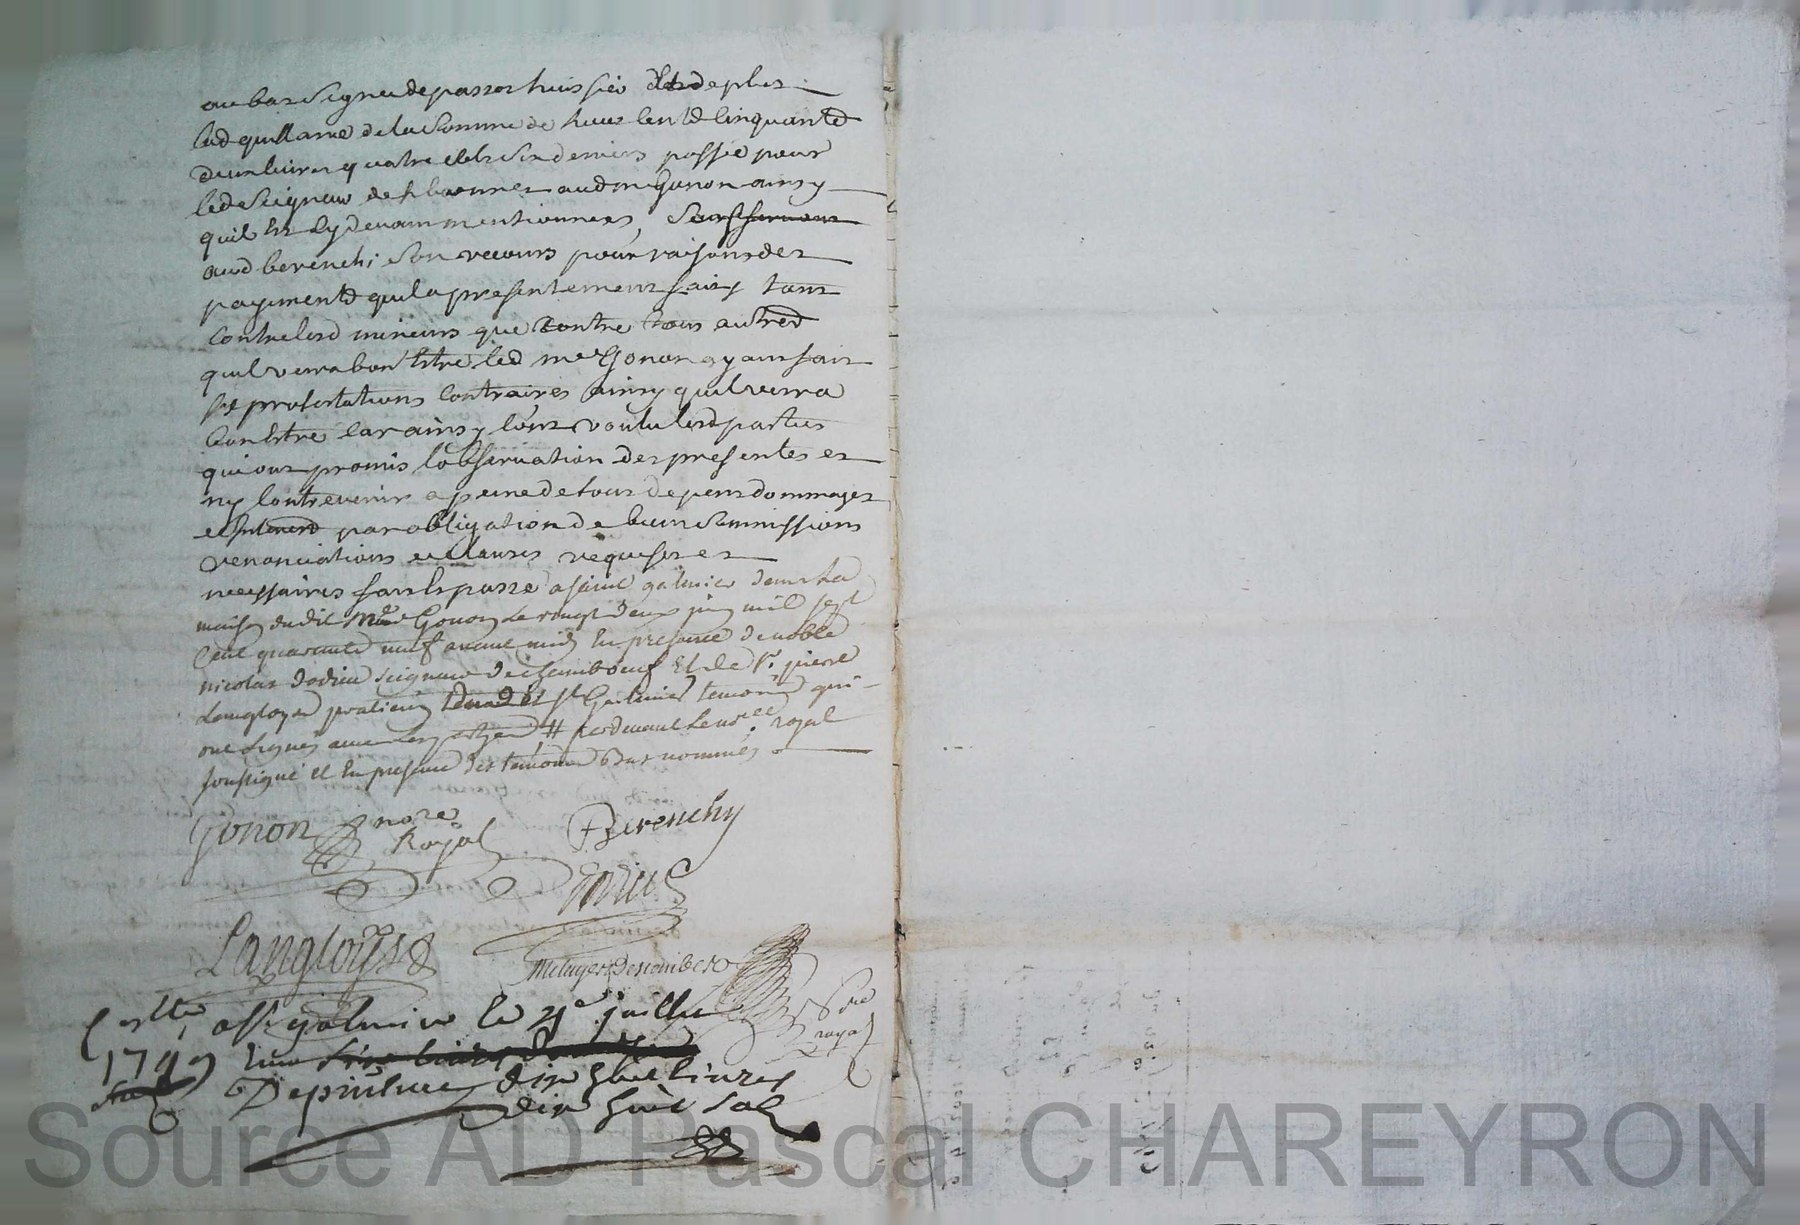 au bas signee depassos huissier et de plus
lad quittance de la somme de huit cent cinquante
deux livres quatre sols six deniers passée pour
led seigneur de aud me Gonon ainsy
quil est cy devant mentionnees, sauf
aud berenchi son recours pour raison des
payements quil a presentement faits tant
contre lesd mineurs que contre tous autres
quil verra bon estre led me Gonon ayant fait
ses protestations contraires ainsy quil verra
bon estre car ainsy lont voulu lesd parties
qui ont promis lobservation des presentes et
ny contrevenir a peine de tous depens dommages
et interets par obligation de biens soumissions
renonciations et clauses requises et
necessaires fait et passé a saint galmier dans la
maison dudit Me Gonon le vingt deux juin mil sept
cent quarante neuf avant midy en presence de noble
nicolas dodieu seigneur de chambœuf et de sr. pierre
Langloys praticien de st Galmier temoins qui
ont signés avec les parties # pardevant le nore royal
soussigné et en presence des temoins bas nommés
Gonon nore
Royal
Berenchy
Dodieu
Langloys
Metayer Descombes
nore
royal
Contlle a st galmier le 21e juillet
1749
dix huit livres
dix huit sols
Source AD Pascal CHAREYRON